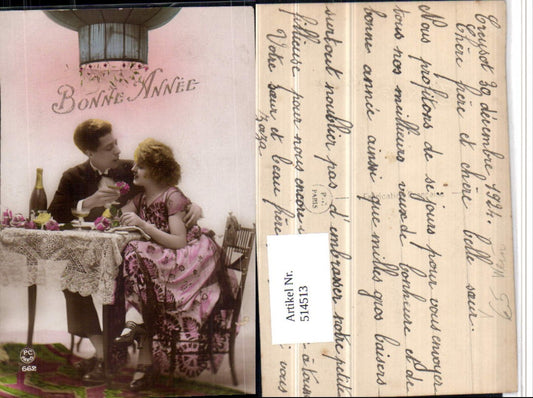 BONNE ANNÉE
PC
PARIS
662
Creusot 30 décembre 1924.
Chère frère et chère belle sœur.
Nous profitons de si jours pour vous envoyer
tous nos meilleurs vœux de bonheure et de
bonne année ainsi que milles gros baisers
surtout noublier pas d'embrasser notre petite
filleuse pour nous encore
à tous
Votre sœur et beau frère
vous
P.C
PARIS
Artikel Nr.
514513